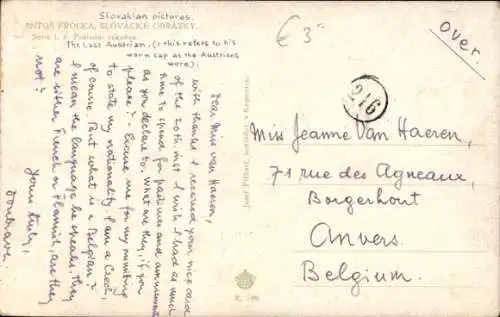 Slovakian pictures.
ANTOŠ FROLKA, SLOVÁCKÉ OBRÁZKY.
Serie I. 6. Poslední rakušan.
The Last Austrian, (this refers to his
worn cap as the Austrians
wore).
€ 3
over.
216
Dear Miss van Haeren,
with thanks I received your nice card
of the 20th inst. I wish I had as much
time to spend for pastimes and amusement
as you declare to. What are they, if you
please? – Excuse me for my omitting
to state my nationality. I am a Czech,
of course. But what is a Belgian?
I mean the language he speaks. They
are either French or Flamish, are they
not?
Yours truly,
Doubrava
Miss Jeanne Van Haeren,
71 rue des Agneaux,
Borgerhout
Anvers.
Belgium.